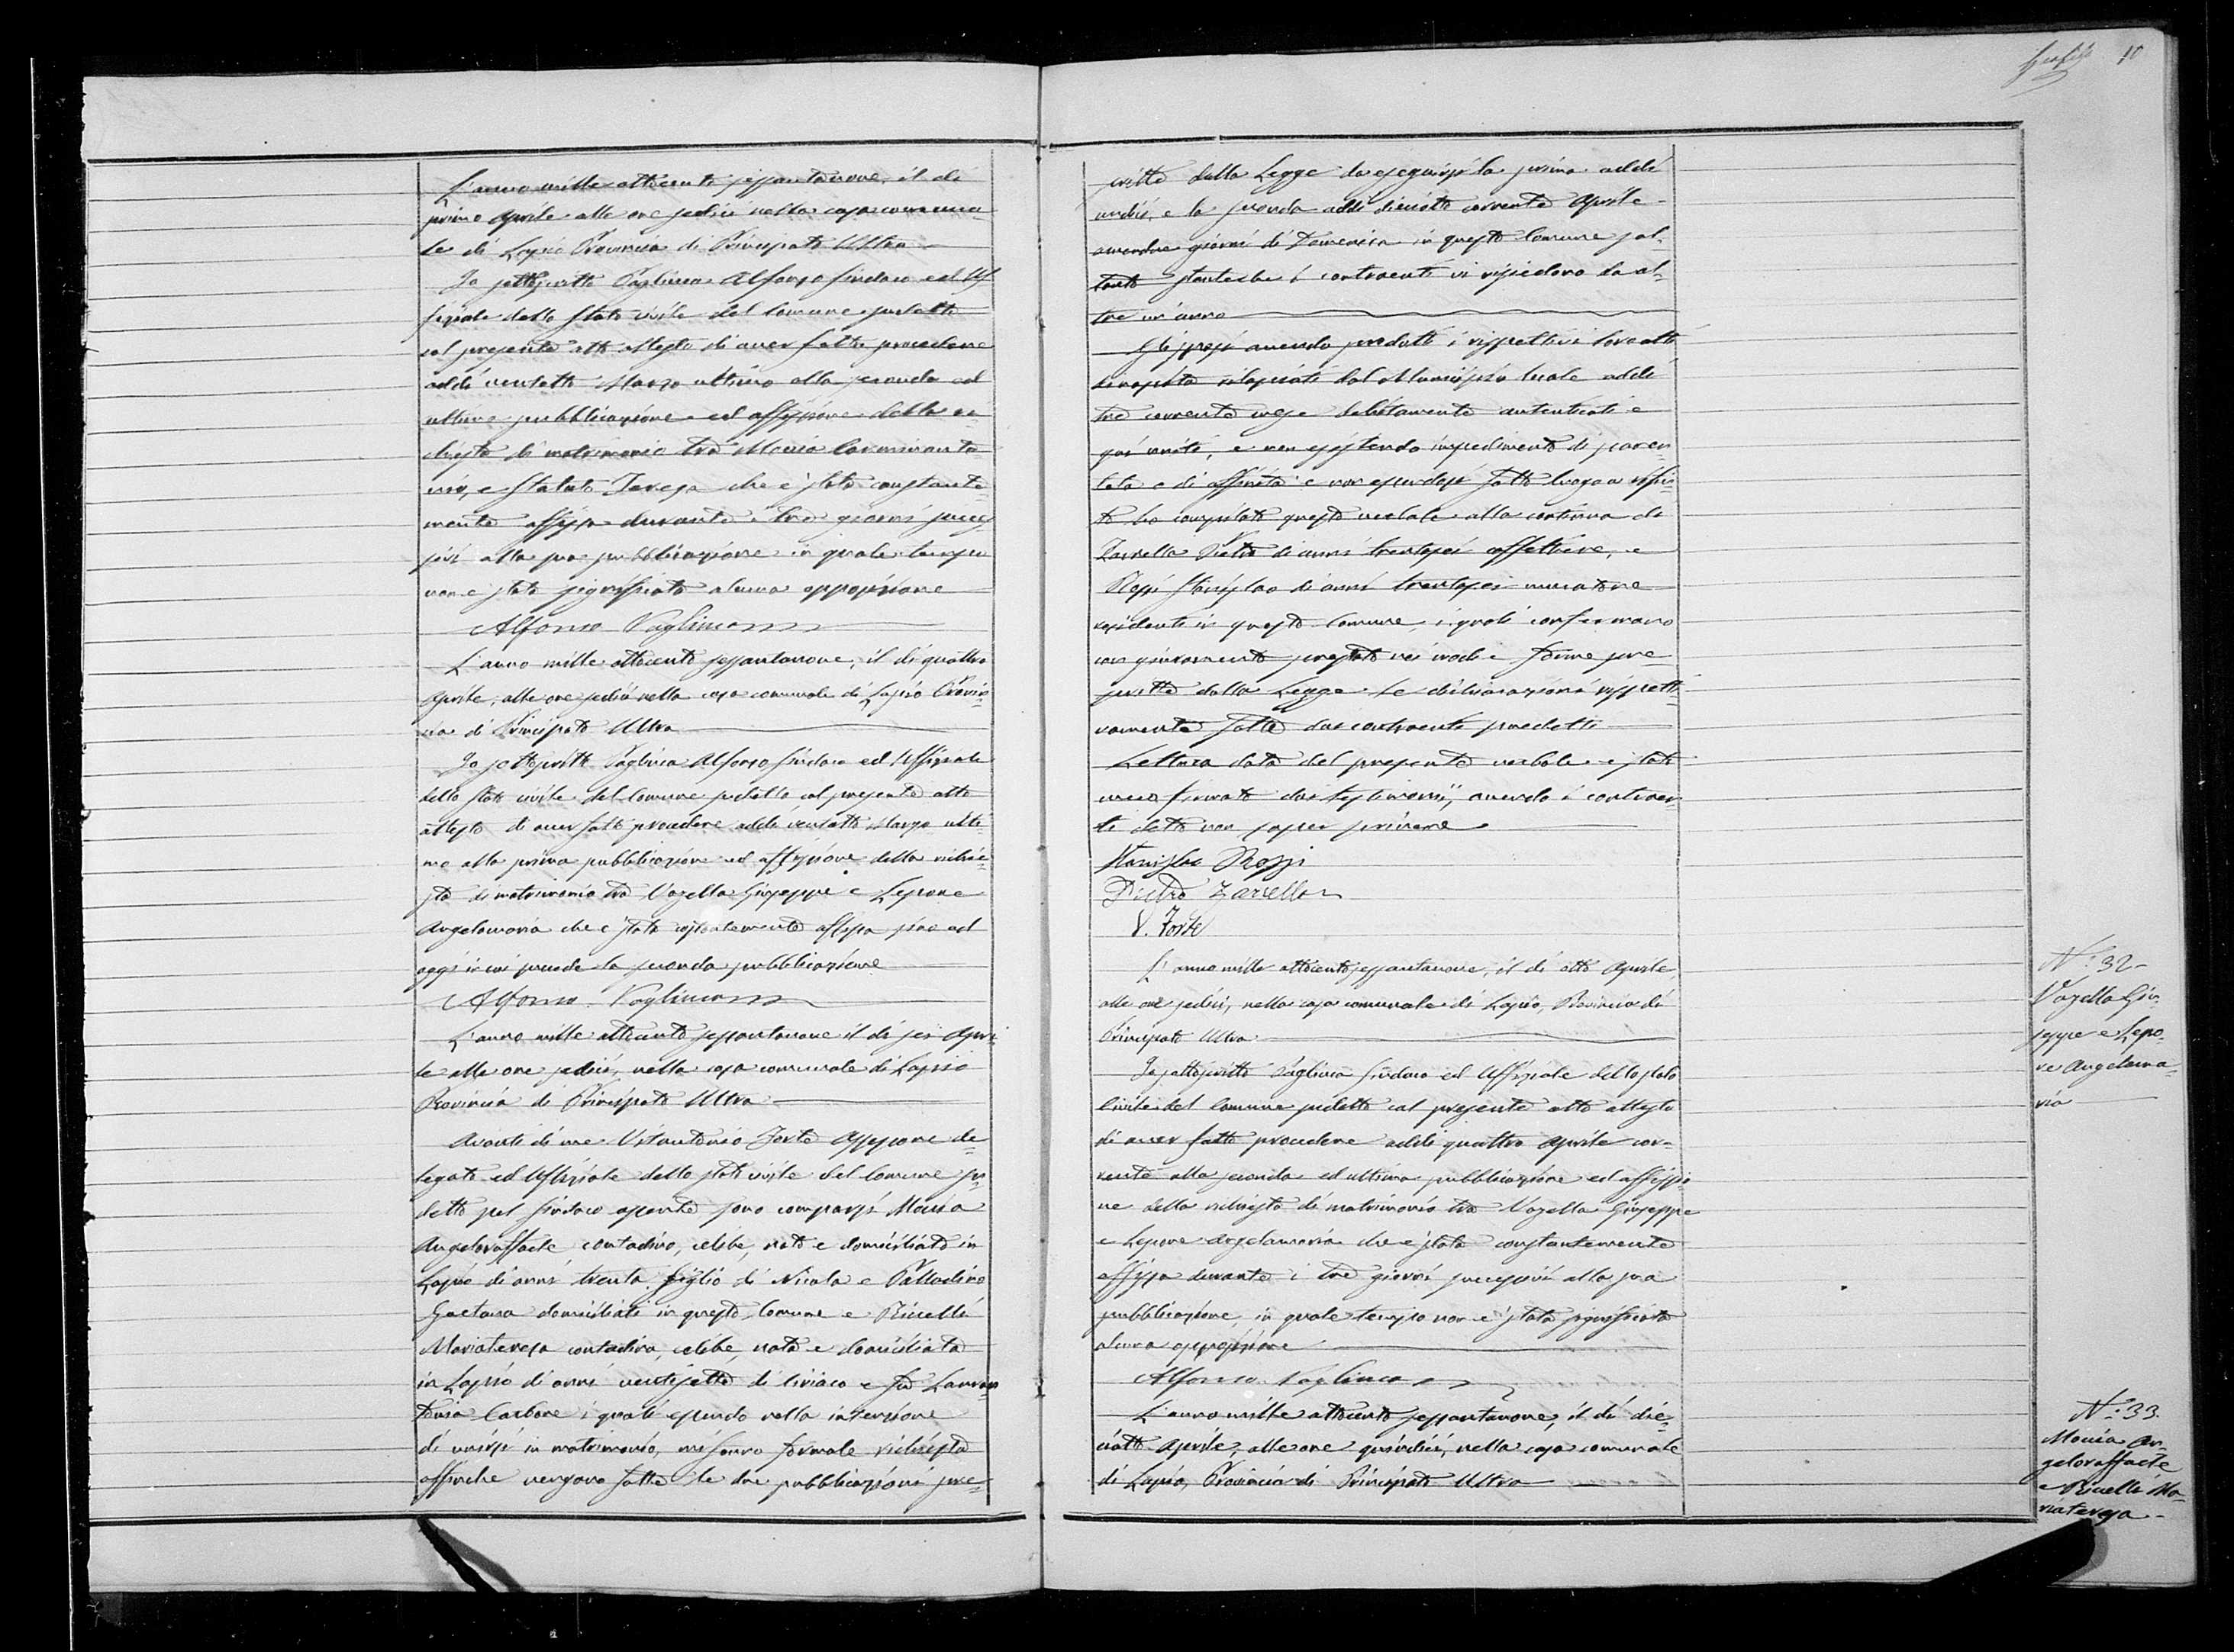 10
L'anno mille ottocento sessantanove, il di
primo Aprile alle ore sedici nella casa comuna-
le di Lapio Provincia di Principato Ultra
Io sottoscritto Vaglimca Alfonso Sindaco ed Uf-
fiziale dello Stato civile del Comune sudetto
col presente atto attesto di aver fatto procedere
addì ventotto Marzo ultimo alla seconda ed
ultima pubblicazione ed affissione della ri-
chiesta di matrimonio tra Moccia Carminanto-
nio, e Statuto Teresa che è stata constante-
mente affissa durante i tre giorni succes-
sivi alla sua pubblicazione in quale tempo
non è stata significata alcuna opposizione
Alfonso
L'anno mille ottocento sessantanove, il di quattro
Aprile, alle ore sedici nella casa comunale di Lapio Provin-
cia di Principato Ultra
Io sottoscritto Alfonso Sindaco ed Uffiziale
dello Stato civile del Comune sudetto col presente atto
attesto di aver fatto procedere addì ventotto Marzo ulti-
mo alla prima pubblicazione ed affissione della richie-
sta di matrimonio tra Vozella Giuseppe e Lepore
Angelamaria che è stata costantemente affissa sino ad
oggi in cui procede la seconda pubblicazione
Alfonso
L'anno mille ottocento sessantanove il di sei Apri-
le alle ore sedici, nella casa comunale di Lapio
Provincia di Principato Ultra
Avanti di me Vitantonio Forte Assessore de-
legato ed Uffiziale dello stato civile del Comune su-
detto pel Sindaco assente sono comparsi Moccia
Angeloraffaele contadino, celibe, nato e domiciliato in
Lapio di anni trenta figlio di Nicola e Palladino
Gaetana domiciliati in questo Comune e Ricelli
Mariateresa contadina, celibe, nata e domiciliata
in Lapio di anni ventisette di Ciriaco e fu
Carbone i quali essendo nella intenzione
di unirsi in matrimonio, mi fanno formale richiesta
affinche vengano fatte le due pubblicazioni pre-
scritte dalla Legge da eseguirsi la prima addì
undici, e la seconda addì dieciotto corrente Aprile
amendue giorni di Domenica in questo Comune sol-
tanto stanteche i contraenti vi risiedono da ol-
tre un anno
Gli sposi avendo prodotti i rispettivi loro atti
di nascita rilasciati dal Municipio locale addì
tre corrente mese debitamente autenticati e
qui uniti, e non esistendo impedimento di paren-
tela e di affinità e non essendosi fatto luogo a rifiu-
to ho compilato questo verbale alla continua di
Zarrella Pietro di anni trentasei caffettiere, e
Rossi Stanislao di anni trentasei muratore
residenti in questo Comune, i quali confermano
con giuramento prestato nei modi e forme pre-
scritte dalla Legge le dichiarazioni rispetti-
vamente fatte dai contraenti predetti
Lettura data del presente verbale è stato
meco firmato dai testimonii, avendo i contraen-
ti detto non saper scrivere
Stanislao Rossi
Pietro Zarrella
V. Forte
L'anno mille ottocentosessantanove, il di otto Aprile
alle ore sedici, nella casa comunale di Lapio, Provincia di
Principato Ultra
Io sottoscritto Sindaco ed Uffiziale dello stato
Civile del Comune sudetto col presente atto attesto
di aver fatto procedere addì quattro Aprile cor-
rente alla seconda ed ultima pubblicazione ed affissio-
ne della richiesta di matrimonio tra Vozella Giuseppe
e Lepore Angelamaria che è stata constantemente
affissa durante i tre giorni successivi alla sua
pubblicazione, in quale tempo non è stata significata
alcuna opposizione
Alfonso
L'anno mille ottocento sessantanove, il di die-
ciotto Aprile, alle ore quindici, nella casa comunale
di Lapio, Provincia di Principato Ultra
N.° 32
Vozella Giu-
seppe e Lepo-
re Angelama-
ria
N.° 33
Moccia An-
geloraffaele
e Ricelli Ma-
riateresa